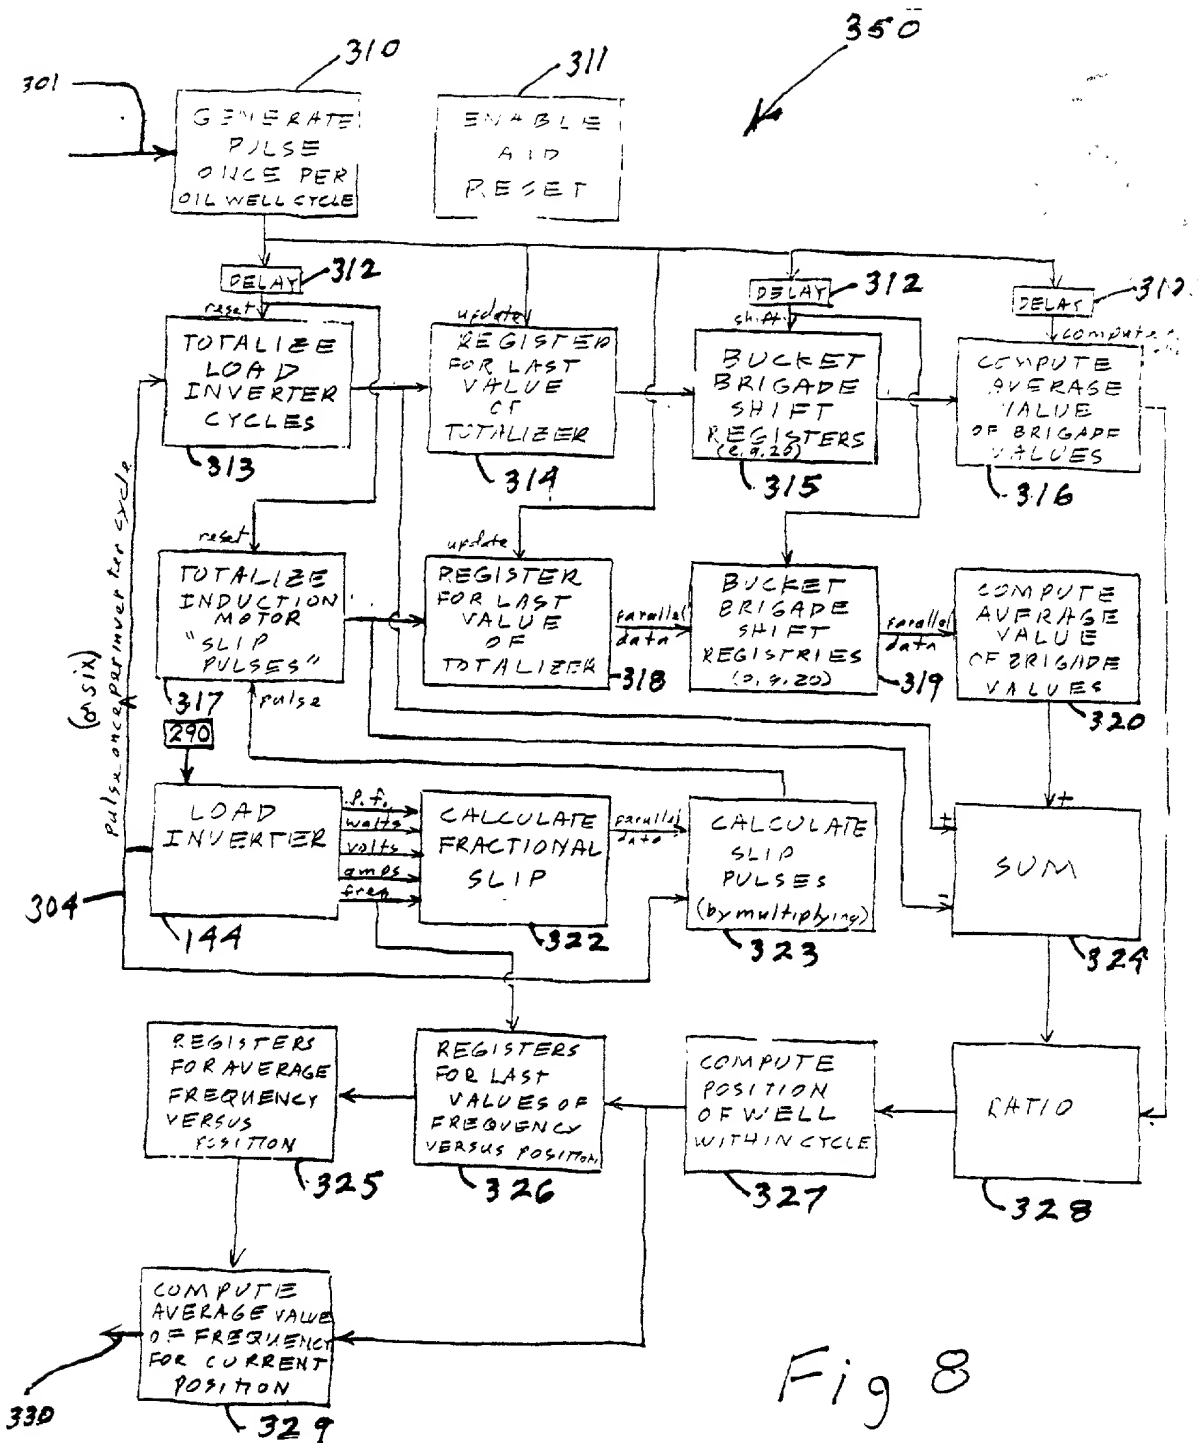 350
310
311
301
GENERATE
PULSE
ONCE PER
OIL WELL CYCLE
ENABLE
AID
RESET
DELAY
312
DELAY
312
DELAY
312
reset
update
shift
compute
TOTALIZE
LOAD
INVERTER
CYCLES
313
REGISTER
FOR LAST
VALUE
OF
TOTALIZER
314
BUCKET
BRIGADE
SHIFT
REGISTERS
(e.g. 20)
315
COMPUTE
AVERAGE
VALUE
OF BRIGADE
VALUES
316
reset
update
TOTALIZE
INDUCTION
MOTOR
"SLIP
PULSES"
317
pulse
REGISTER
FOR LAST
VALUE
OF
TOTALIZER
318
parallel
data
BUCKET
BRIGADE
SHIFT
REGISTRIES
(e.g. 20)
319
parallel
data
COMPUTE
AVERAGE
VALUE
OF BRIGADE
VALUES
320
Pulse once per inverter cycle
(or six)
290
LOAD
INVERTER
144
304
p.f.
watts
volts
amps
freq
CALCULATE
FRACTIONAL
SLIP
322
parallel
data
CALCULATE
SLIP
PULSES
(by multiplying)
323
+
+
-
SUM
324
REGISTERS
FOR AVERAGE
FREQUENCY
VERSUS
POSITION
325
REGISTERS
FOR LAST
VALUES OF
FREQUENCY
VERSUS POSITION
326
COMPUTE
POSITION
OF WELL
WITHIN CYCLE
327
RATIO
328
COMPUTE
AVERAGE VALUE
OF FREQUENCY
FOR CURRENT
POSITION
329
330
Fig 8